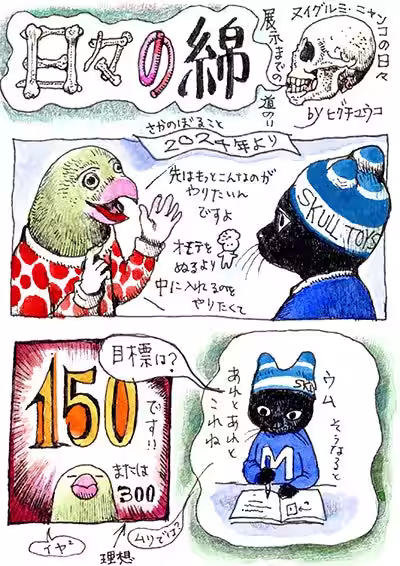 日々の綿
ヌイグルミ・ニャンコの日々
展示までの道のり
by ヒグチユウコ
さかのぼること
2024年より
先はもっとこんなのが
やりたいん
ですよ
オモテを
ぬるより
中に入れるのを
やりたくて
SKULL TOYS
目標は?
150
です!!
または
300
イヤ
理想
ムリでは?
ウム
そうなると
あれとあれと
これね
SKU
M